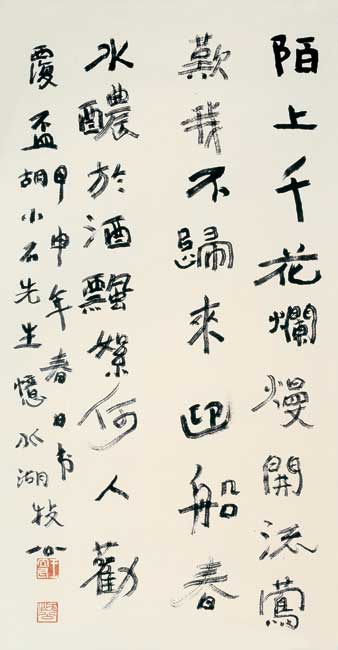 陌上千花爛熳開流鶯
歎我不歸來迎船春
水醲於酒飄絮何人勸
覆盃
甲申年春日书
胡小石先生憶湖牧公